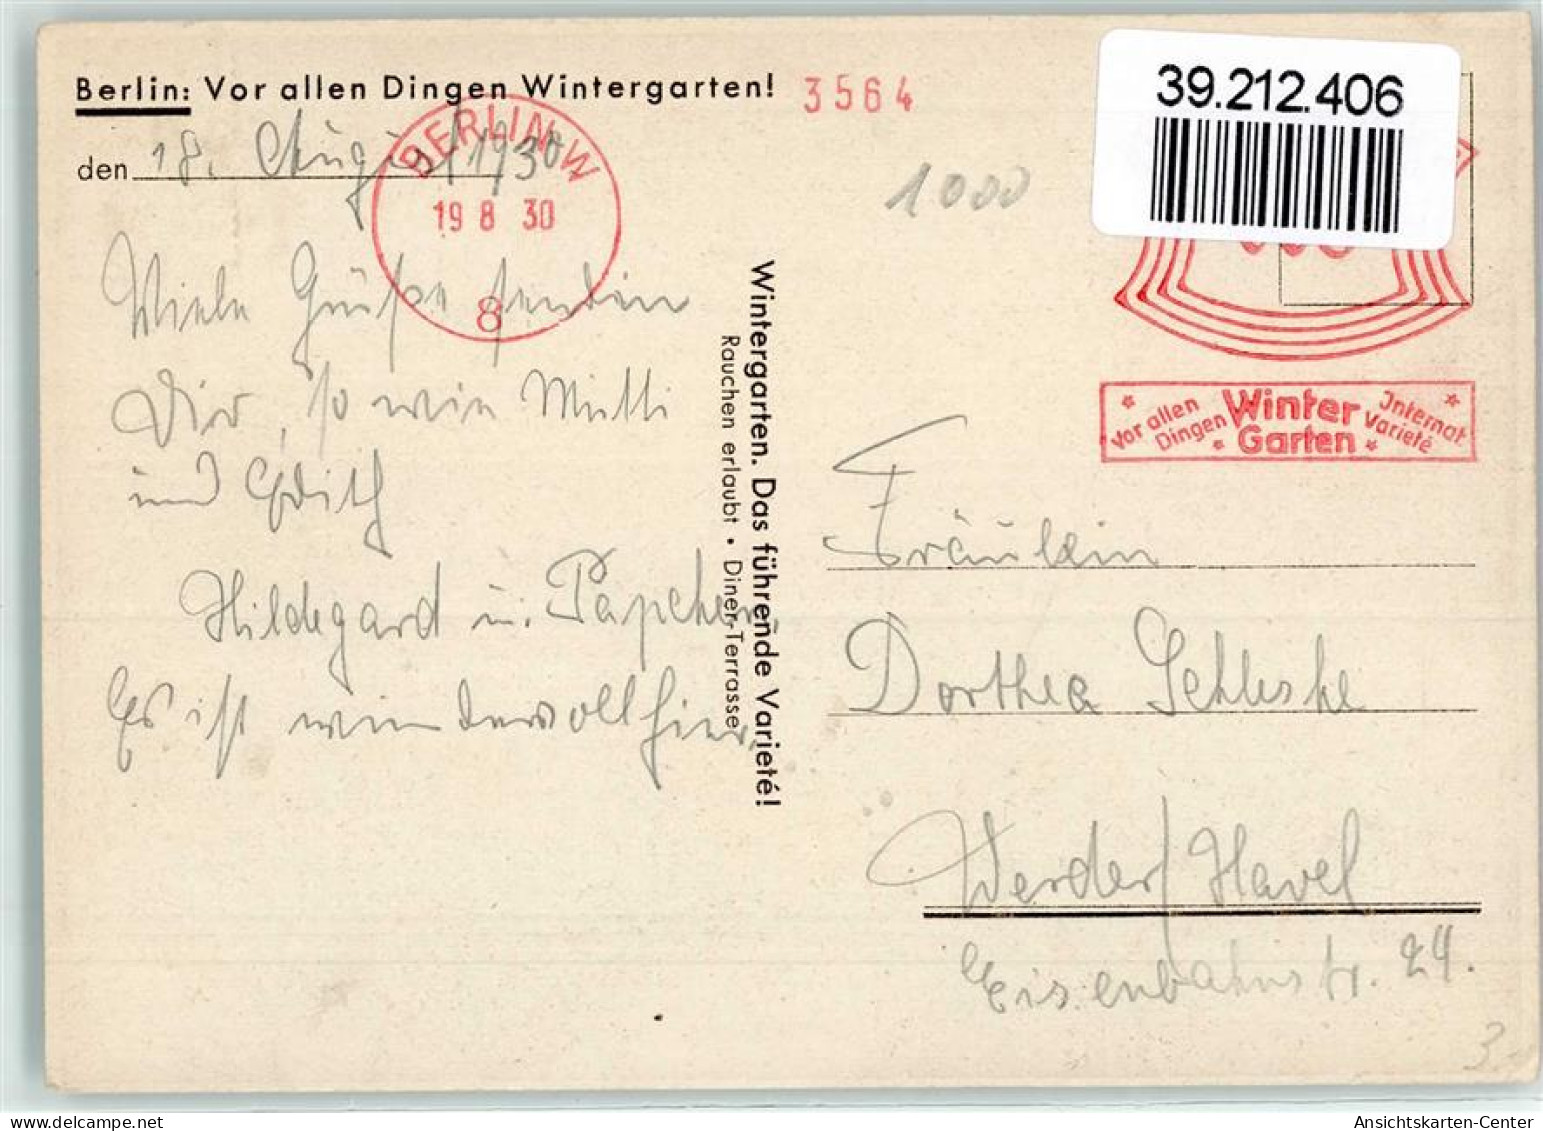 Berlin: Vor allen Dingen Wintergarten!
3564
39.212.406
den 18. August 1930
BERLIN W
19 8 30
8
1000
Viele Grüße senden
Dir, so wie Mutti
und Edith
Hildegard u. Papchen.
Es ist wundervoll hier.
Wintergarten. Das führende Varieté!
Rauchen erlaubt • Diner-Terrasse
Vor allen Dingen Winter Garten Internat Varieté
Fräulein
Dorthea
Werder/Havel
Eisenbahnstr. 24.
3
Ansichtskarten-Center
delcampe.net